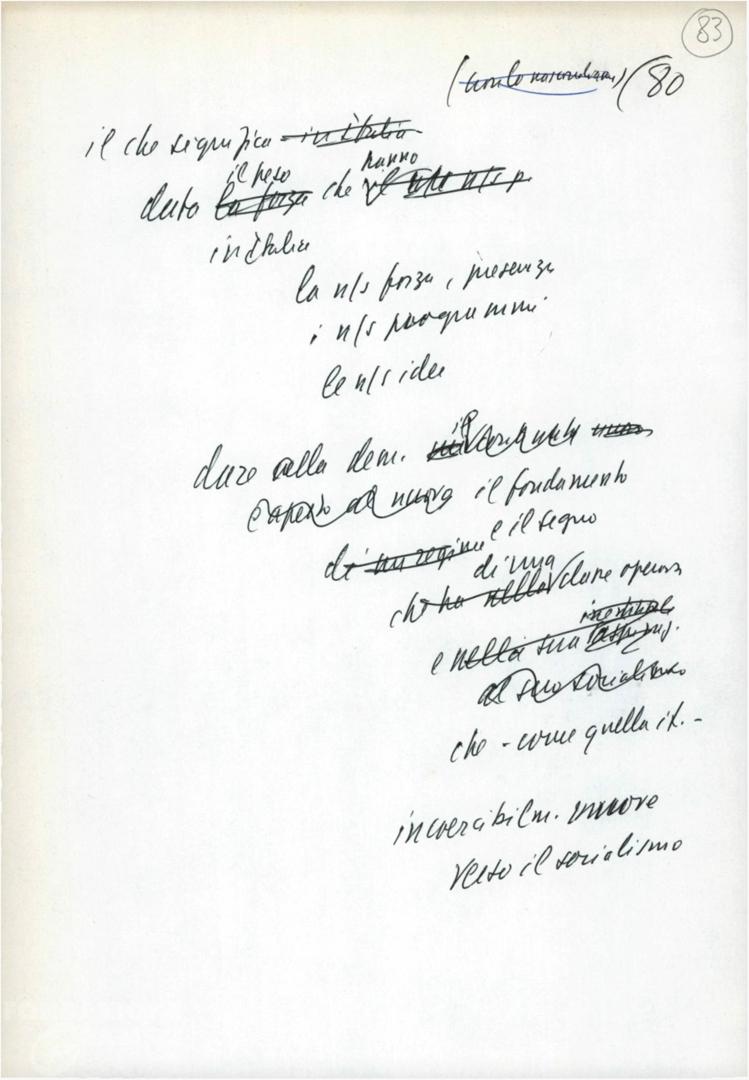 83
80
il che significa in italia
il peso hanno
dato la forza che il
in italia
la n/s forza, presenza
i n/s programmi
le n/s idee
dare alla dem. il
aperto al nuovo il fondamento
di un regime e il segno
di una
che ha nella classe operaia
e nella sua
al suo socialismo
che - come quella it. -
incoercibilm. muove
verso il socialismo